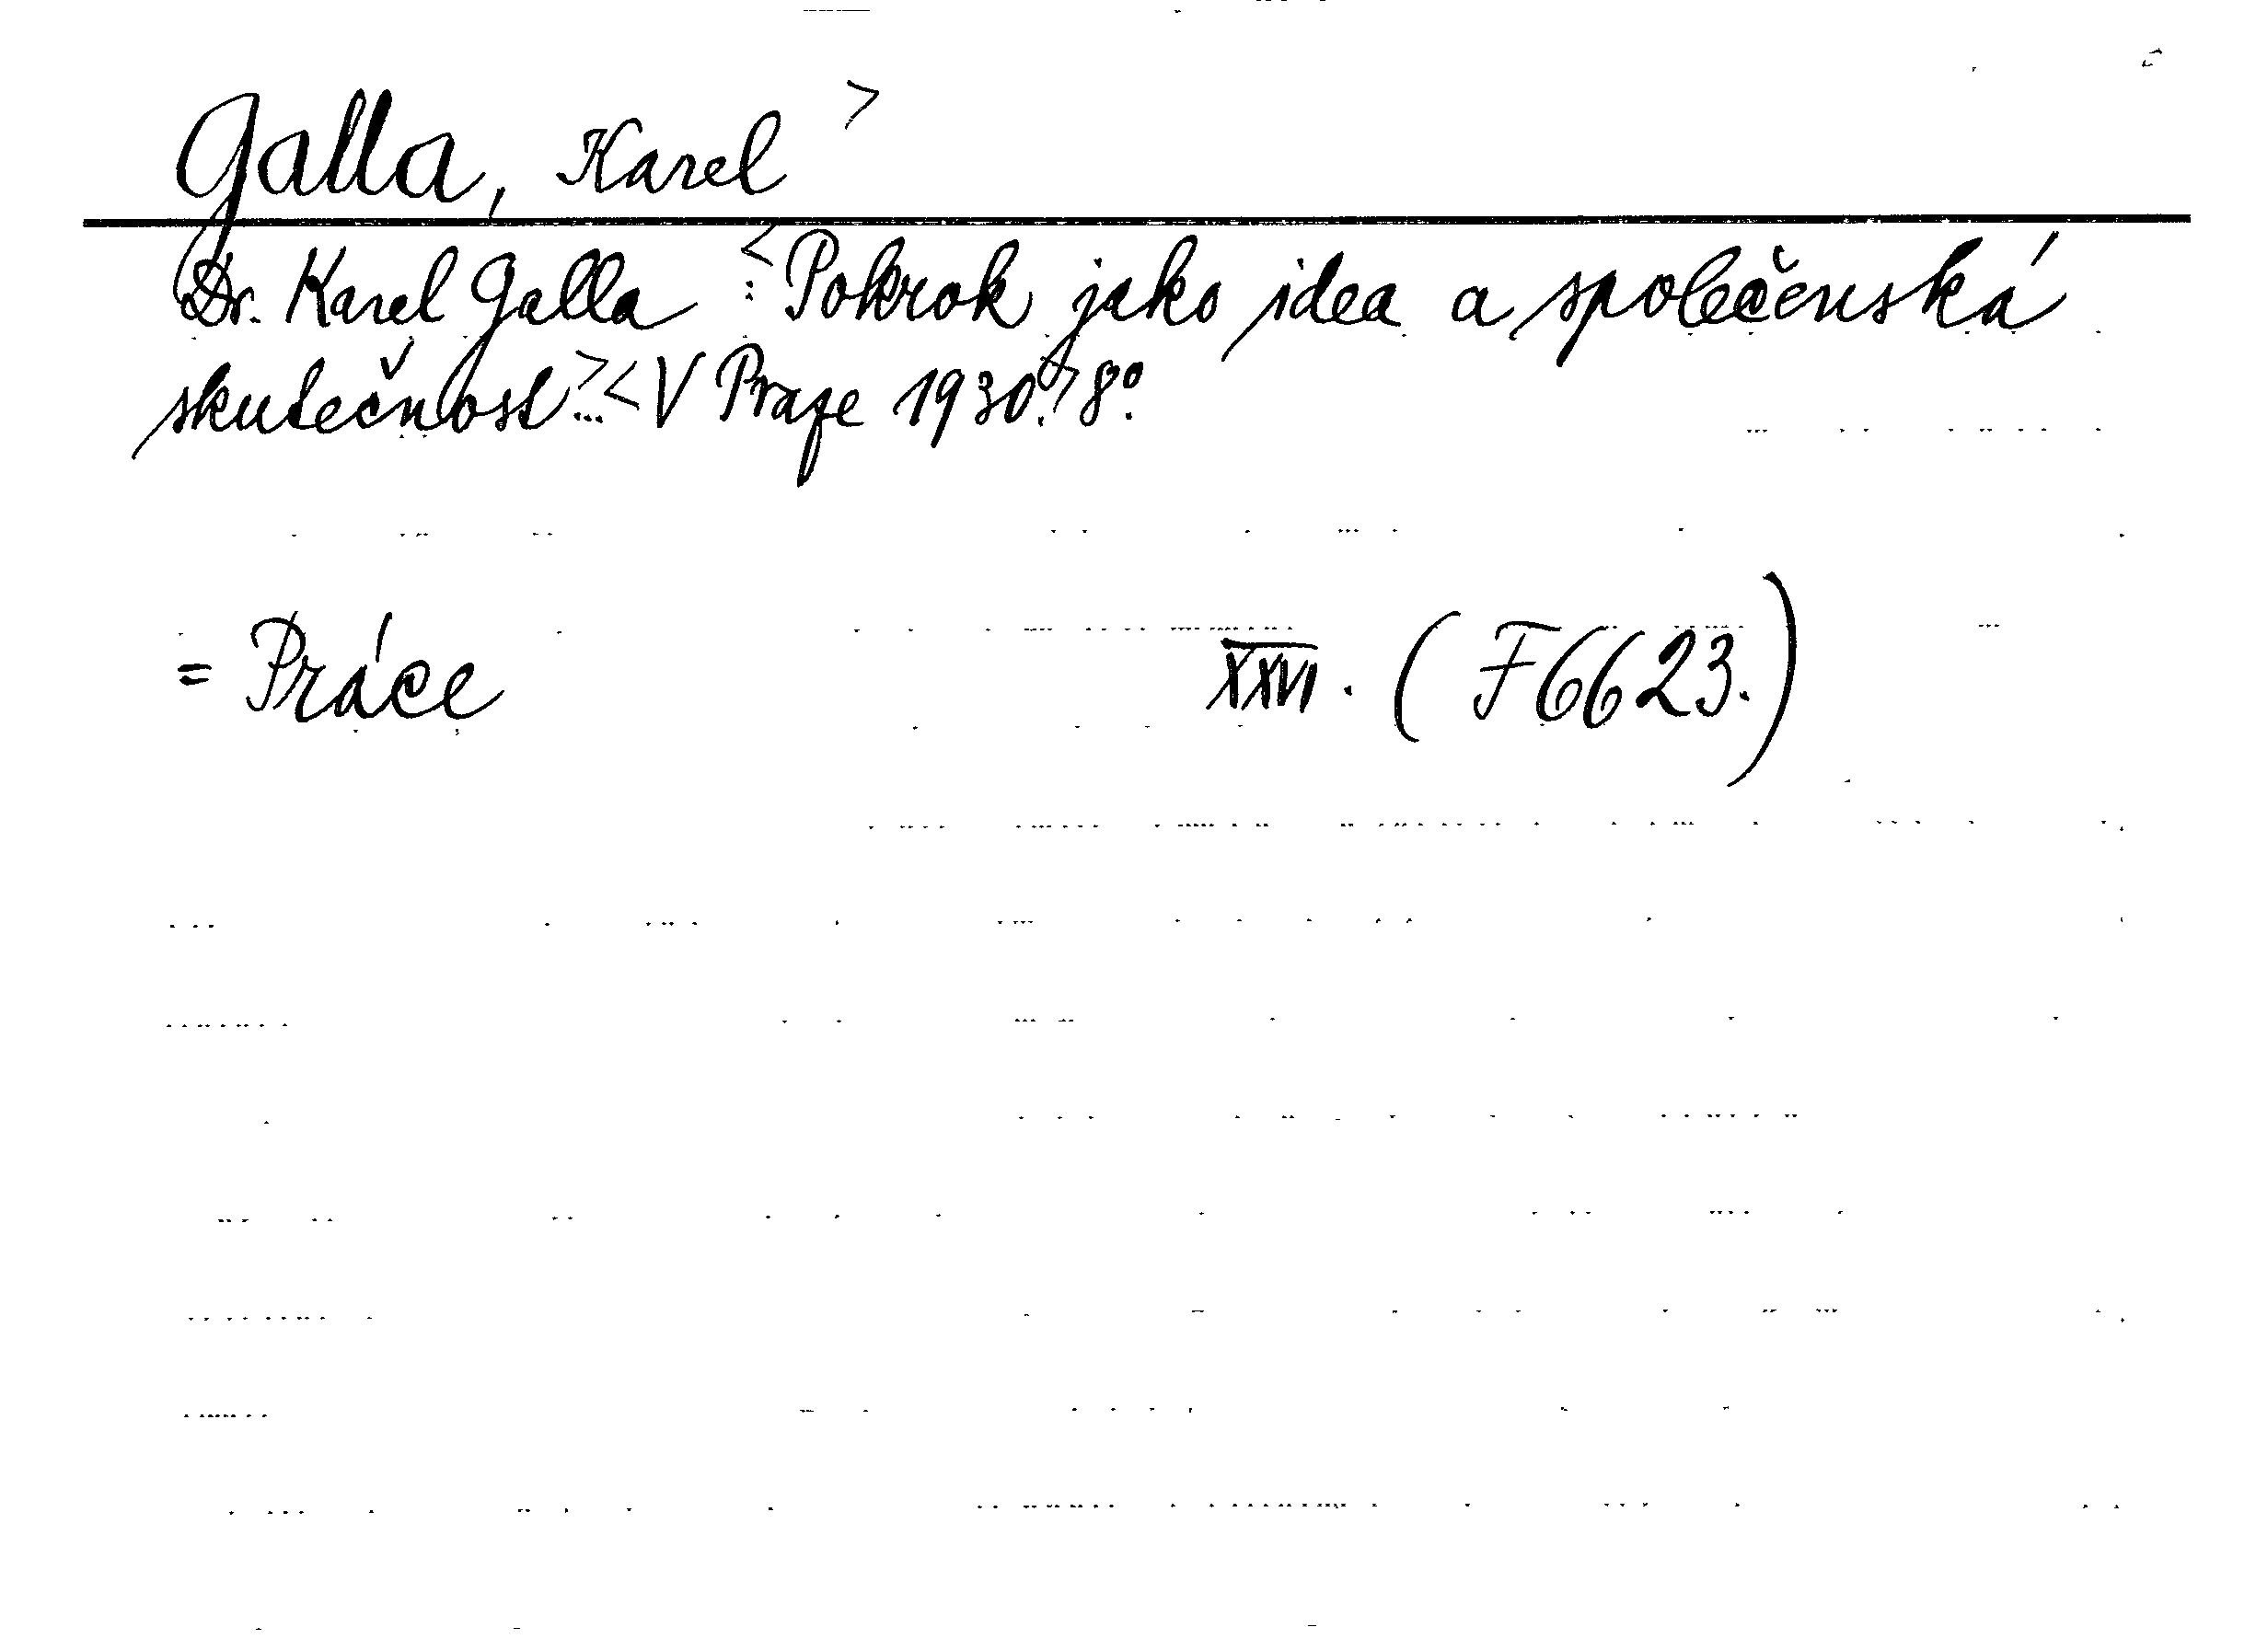 Galla, Karel >
Dr. Karel Galla : <Pokrok jako idea a společenská
skutečnost>... <V Praze 1930.> 8°.
= Práce XXVI. (F6623.)